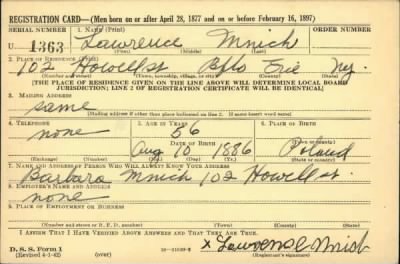 REGISTRATION CARD—(Men born on or after April 28, 1877 and on or before February 16, 1897)
SERIAL NUMBER 1. NAME (Print) ORDER NUMBER
U 1363 Lawrence Mnich
(First) (Middle) (Last)
2. PLACE OF RESIDENCE (Print)
102 Howell st Bflo Erie N.Y.
(Number and street) (Town, township, village, or city) (County) (State)
[THE PLACE OF RESIDENCE GIVEN ON THE LINE ABOVE WILL DETERMINE LOCAL BOARD
JURISDICTION; LINE 2 OF REGISTRATION CERTIFICATE WILL BE IDENTICAL]
3. MAILING ADDRESS
same
[Mailing address if other than place indicated on line 2. If same insert word same]
4. TELEPHONE 5. AGE IN YEARS 6. PLACE OF BIRTH
none 56
DATE OF BIRTH
Aug 10 1886 Poland
(Exchange) (Number) (Mo.) (Day) (Yr.) (State or country)
7. NAME AND ADDRESS OF PERSON WHO WILL ALWAYS KNOW YOUR ADDRESS
Barbara Mnich 102 Howell st.
8. EMPLOYER'S NAME AND ADDRESS
none
9. PLACE OF EMPLOYMENT OR BUSINESS
(Number and street or R. F. D. number) (Town) (County) (State)
I AFFIRM THAT I HAVE VERIFIED ABOVE ANSWERS AND THAT THEY ARE TRUE.
D. S. S. Form 1
(Revised 4-1-42) (over) x Lawrence Mnich
(Registrant's signature)